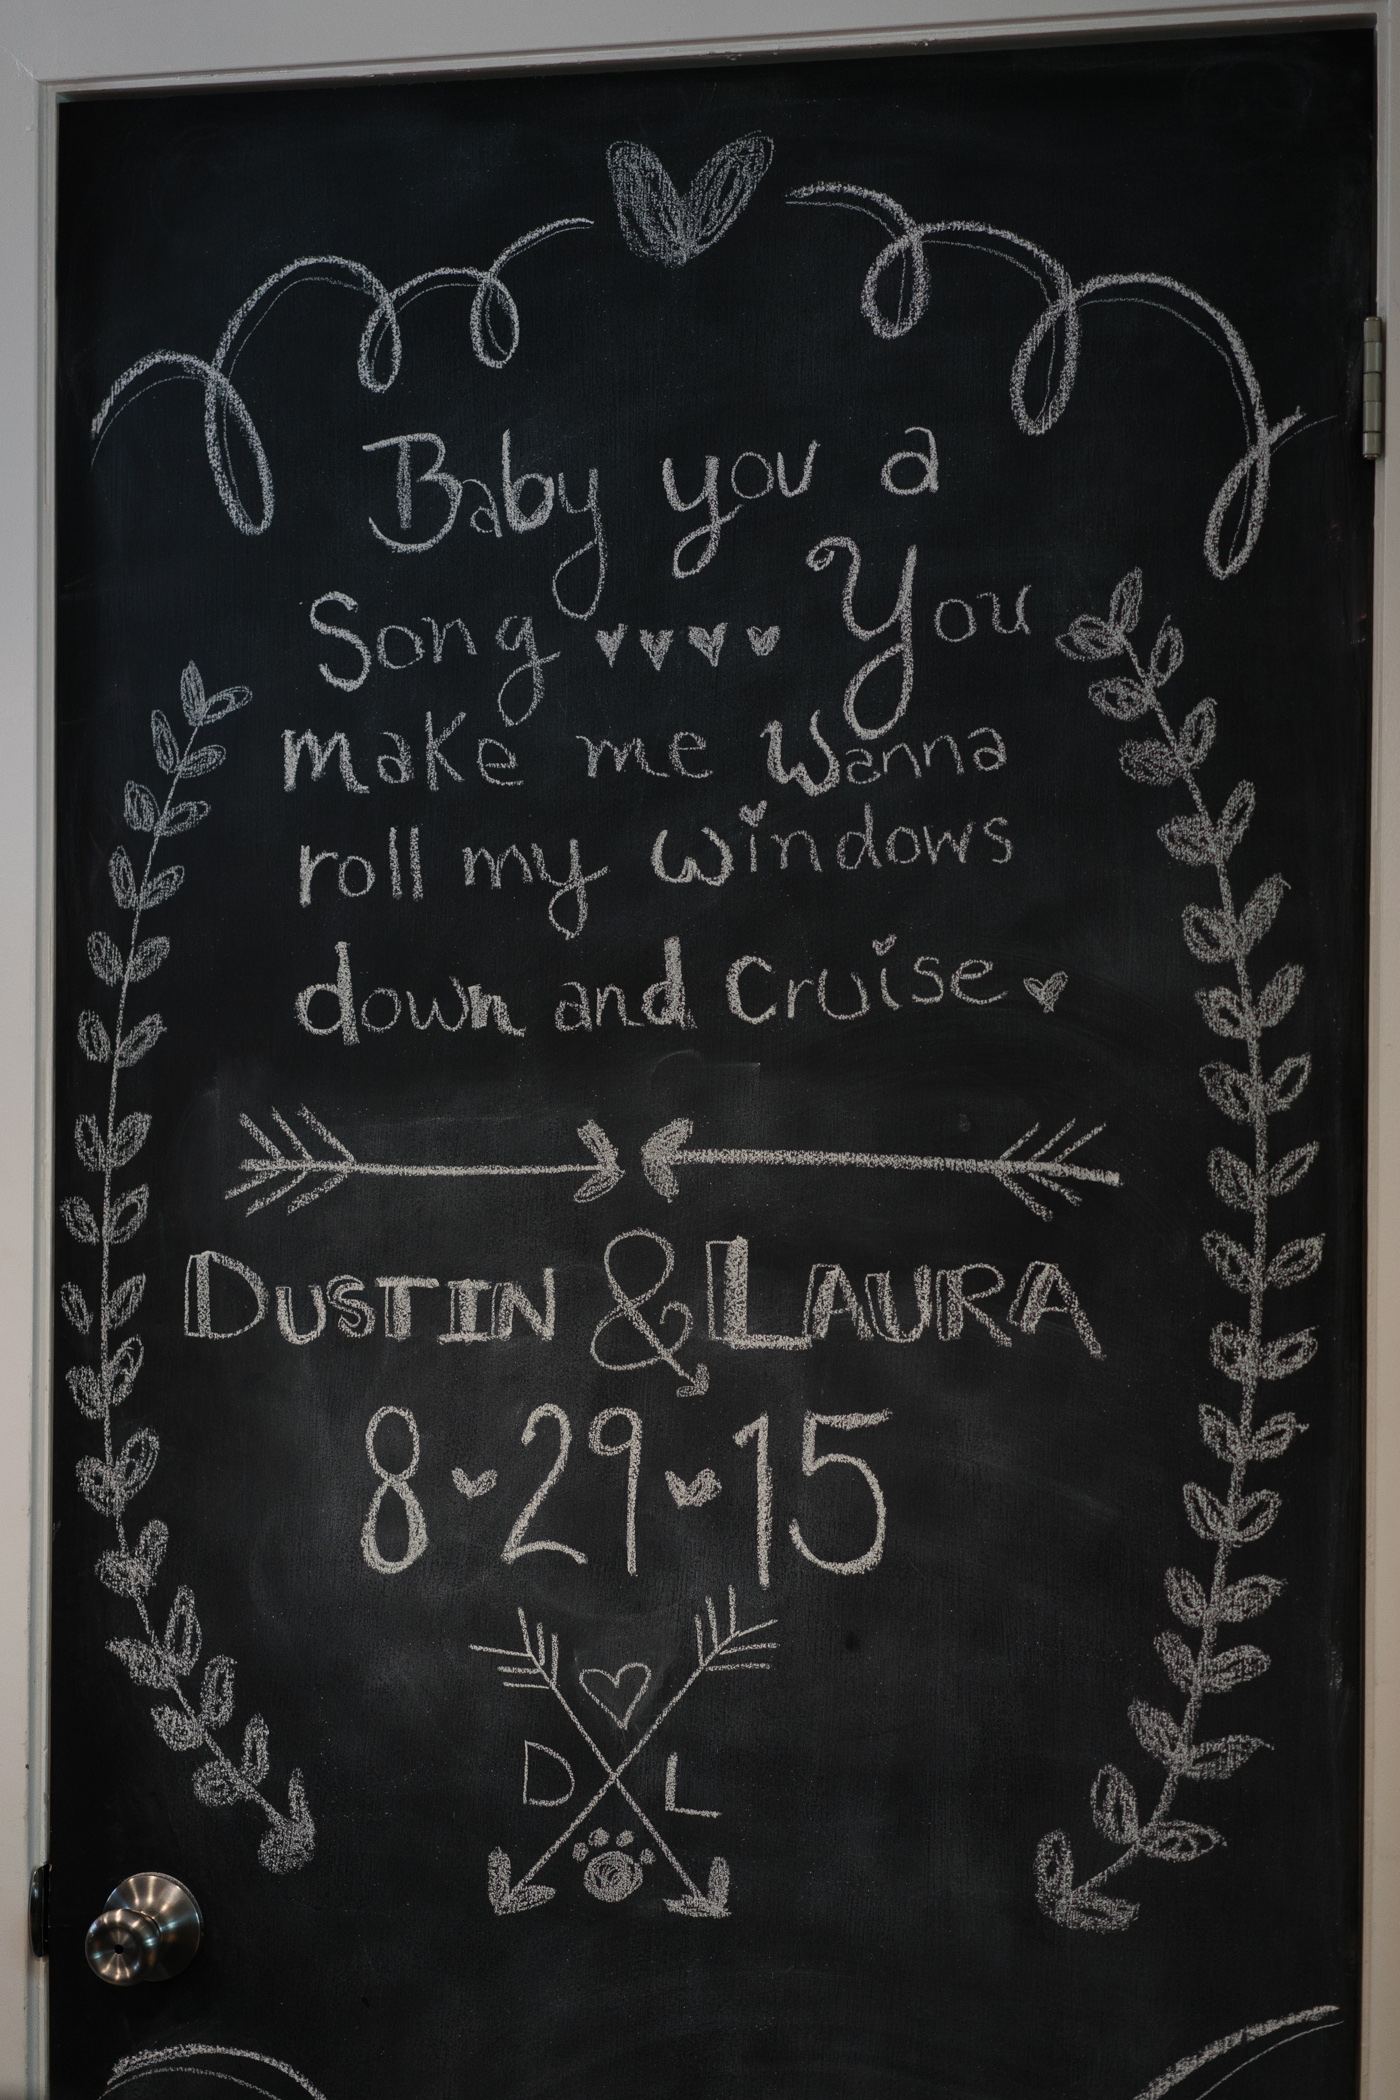 Baby you a
Song You
make me wanna
roll my windows
down and Cruise
DUSTIN & LAURA
8 29 15
D L